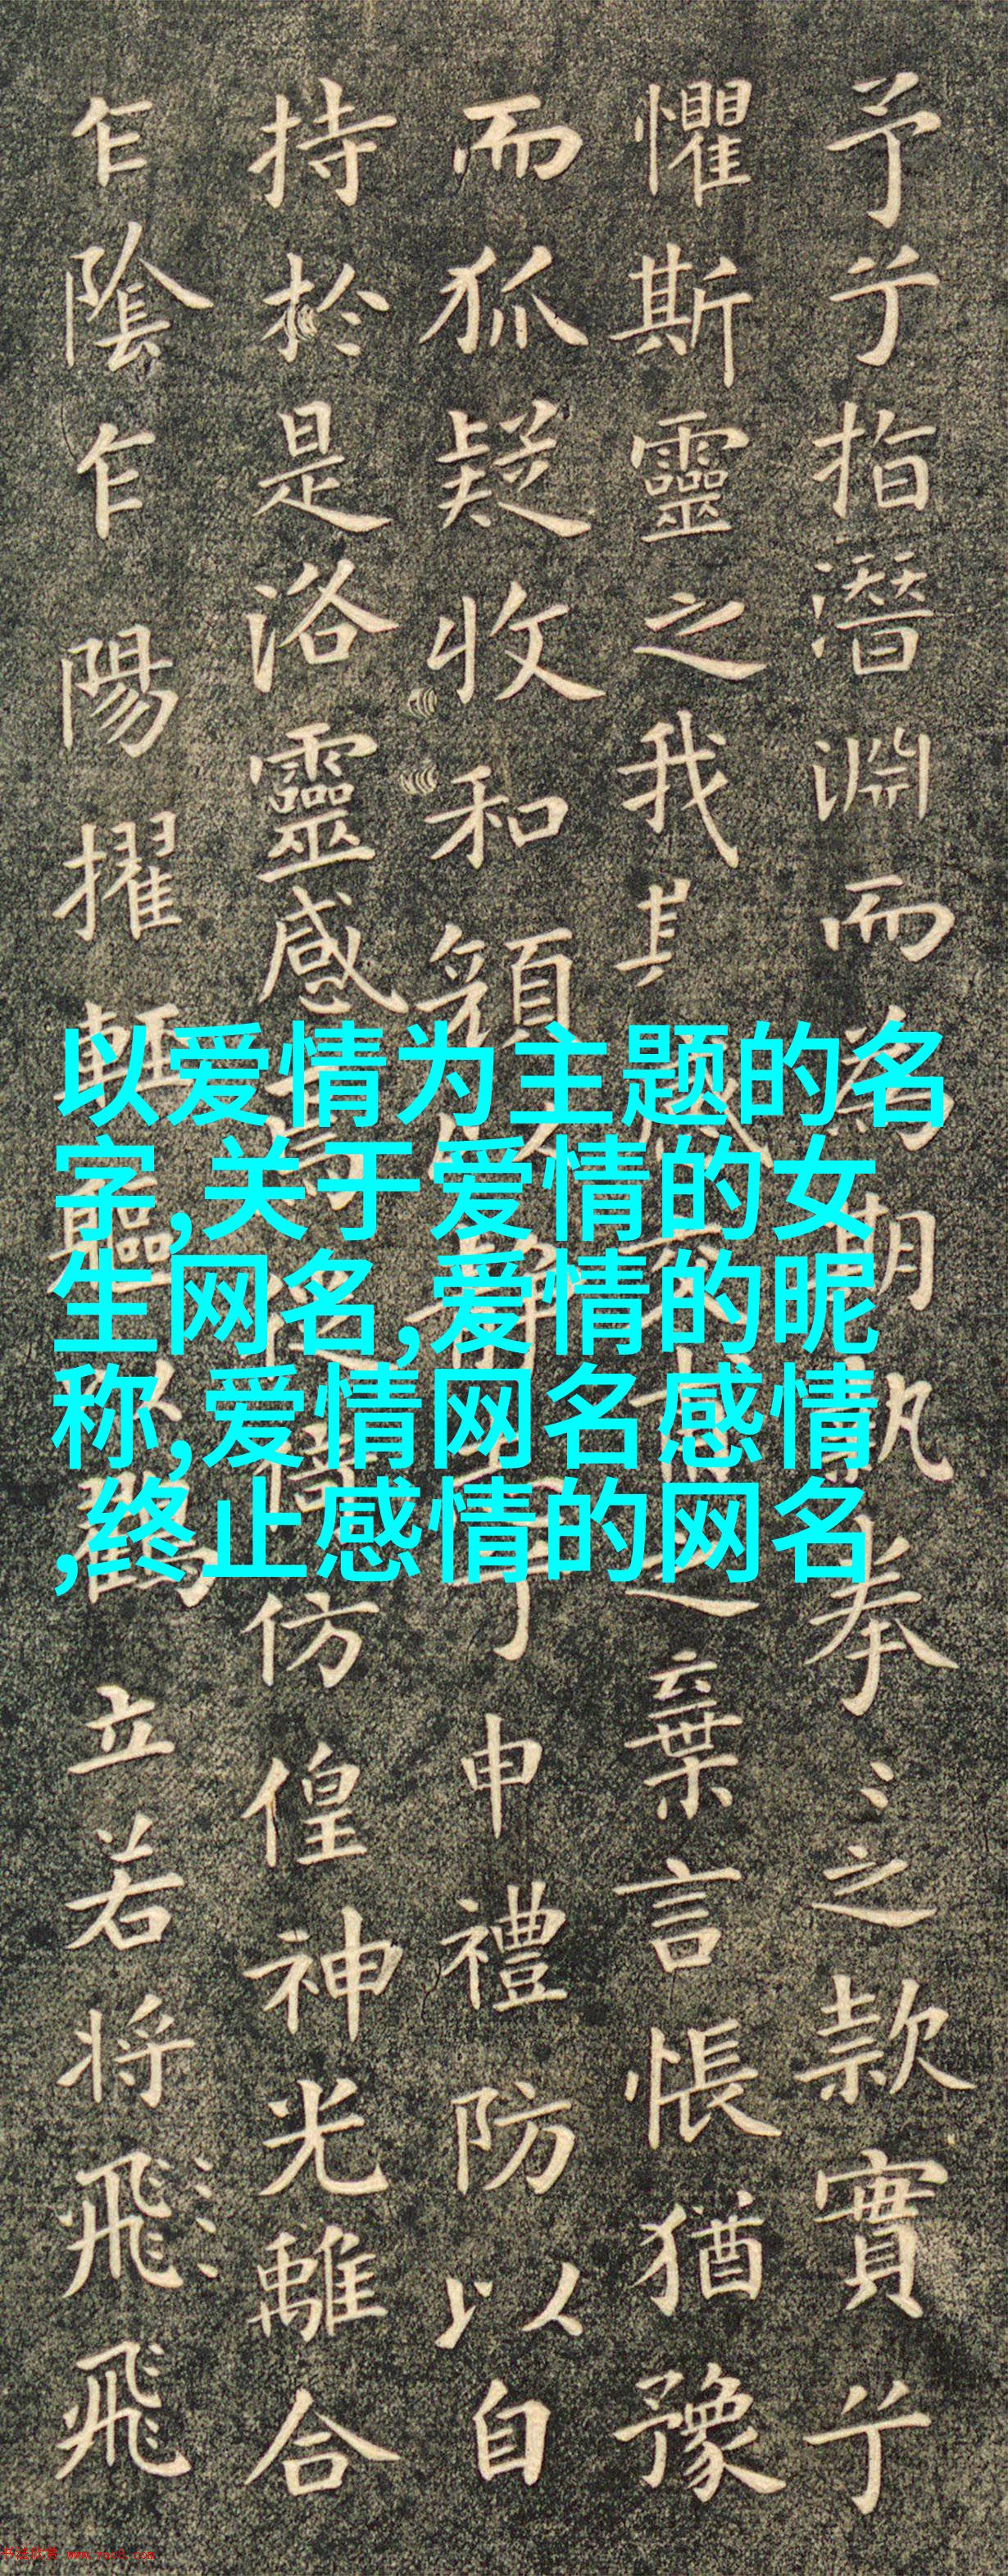 予兮指潛淵而為期執拳〻之款實兮
懼斯靈之我之棄言悵猶豫
而狐疑收和顏兮申禮防以自
持於是洛靈感焉仿偟神光離合
乍陰乍陽擢輕軀鶴立若將飛飛
以爱情为主题的名
字,关于爱情的女
生网名,爱情的昵
称,爱情网名感情
,终止感情的网名